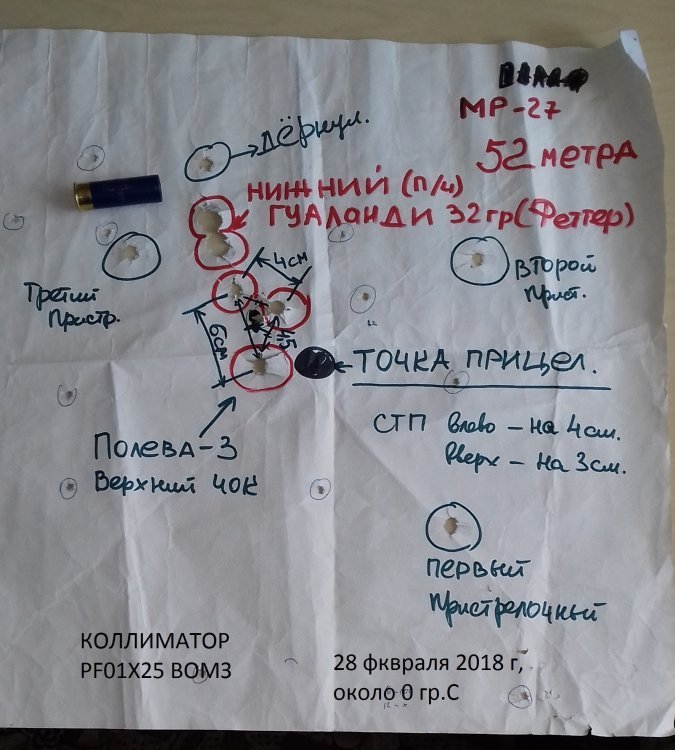 МР-27
52 метра
Дёрнул.
НИЖНИЙ (п/ч)
ГУАЛАНДИ 32гр (Феттер)
4см
Второй
Прист.
Третий
Пристр.
6см
4,5
ТОЧКА ПРИЦЕЛ.
СТП Влево – на 4см.
Вверх – на 3см.
Полева-3
Верхний ЧОК
первый
пристрелочный
КОЛЛИМАТОР
PF01X25 ВОМЗ
28 фквраля 2018 г,
около 0 гр.С